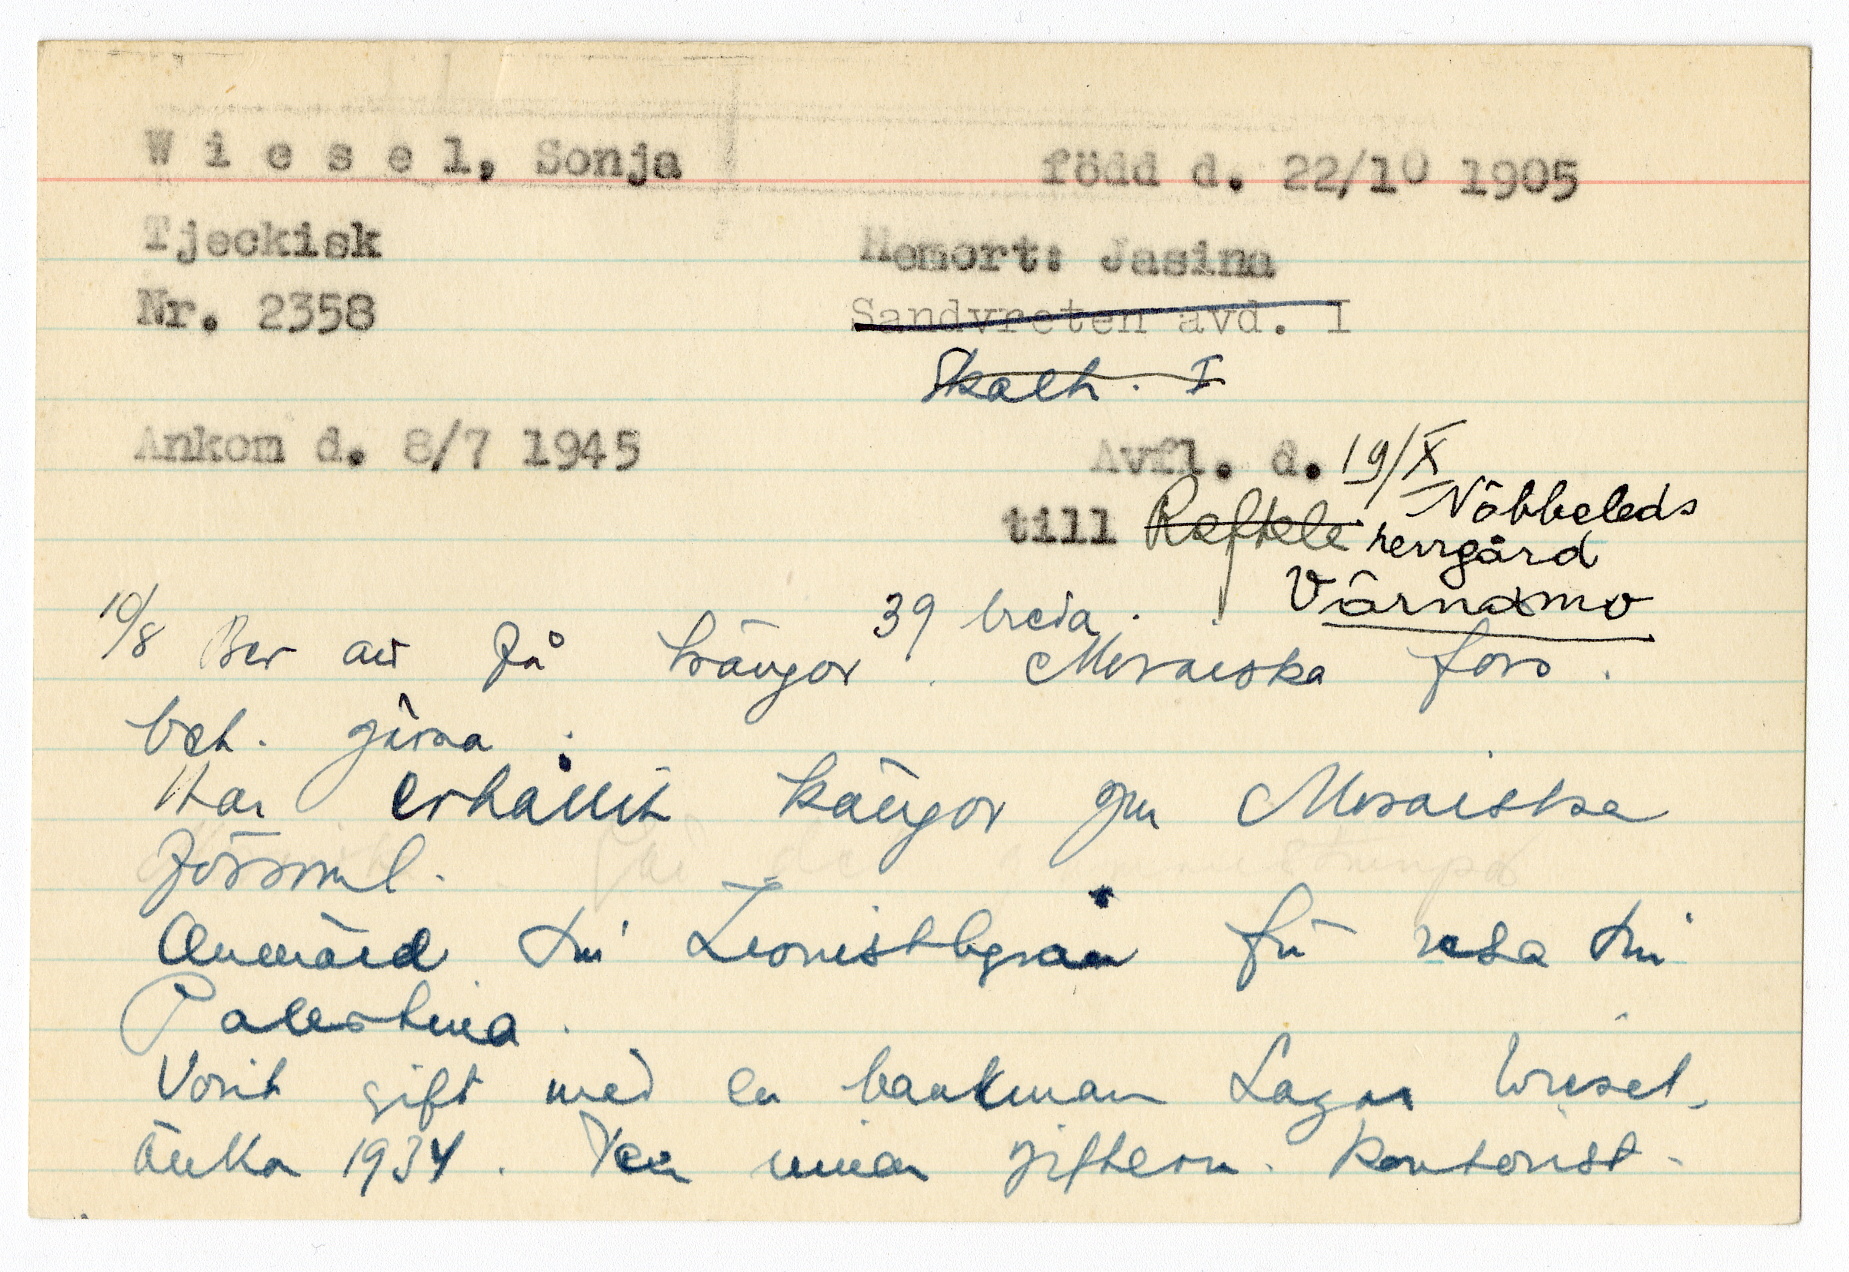 W i e s e l, Sonja född d. 22/10 1905
Tjeckisk Hemort: Jasina
Nr. 2358 Sandvreten avd. I
Skath. I
Ankom d. 8/7 1945 Avfl. d. 19/X
till Reftele Nöbbeleds
herrgård
Värnamo
10/8 Ber att få kängor 39 breda. Mosaiska förs.
bet. gärna.
Har erhållit kängor gm Mosaiska
Församl.
Anmäld till Zionistbyrån för resa till
Palestina.
Varit gift med en bankman Lazar Wiesel.
Änka 1934. Kontorist.